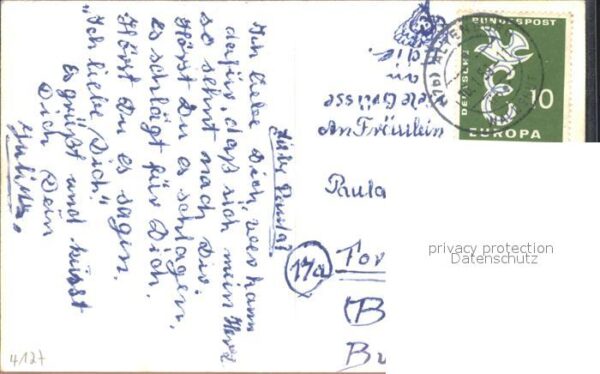 Liebe Paula!
Ich liebe Dich, wer kann
dafür, daß sich mein Herz
so sehnt nach Dir.
Hörst Du es schlagen,
es schlägt für Dich.
Hörst Du es sagen.
"Ich liebe Dich"!
Es grüßt und küsst
Dich Dein
Julius.
4/127
viele Grüsse
an
die
An Fräulein
Paula
17a
For
(B
Bu
DEUTSCHE BUNDESPOST
10
EUROPA
privacy protection
Datenschutz